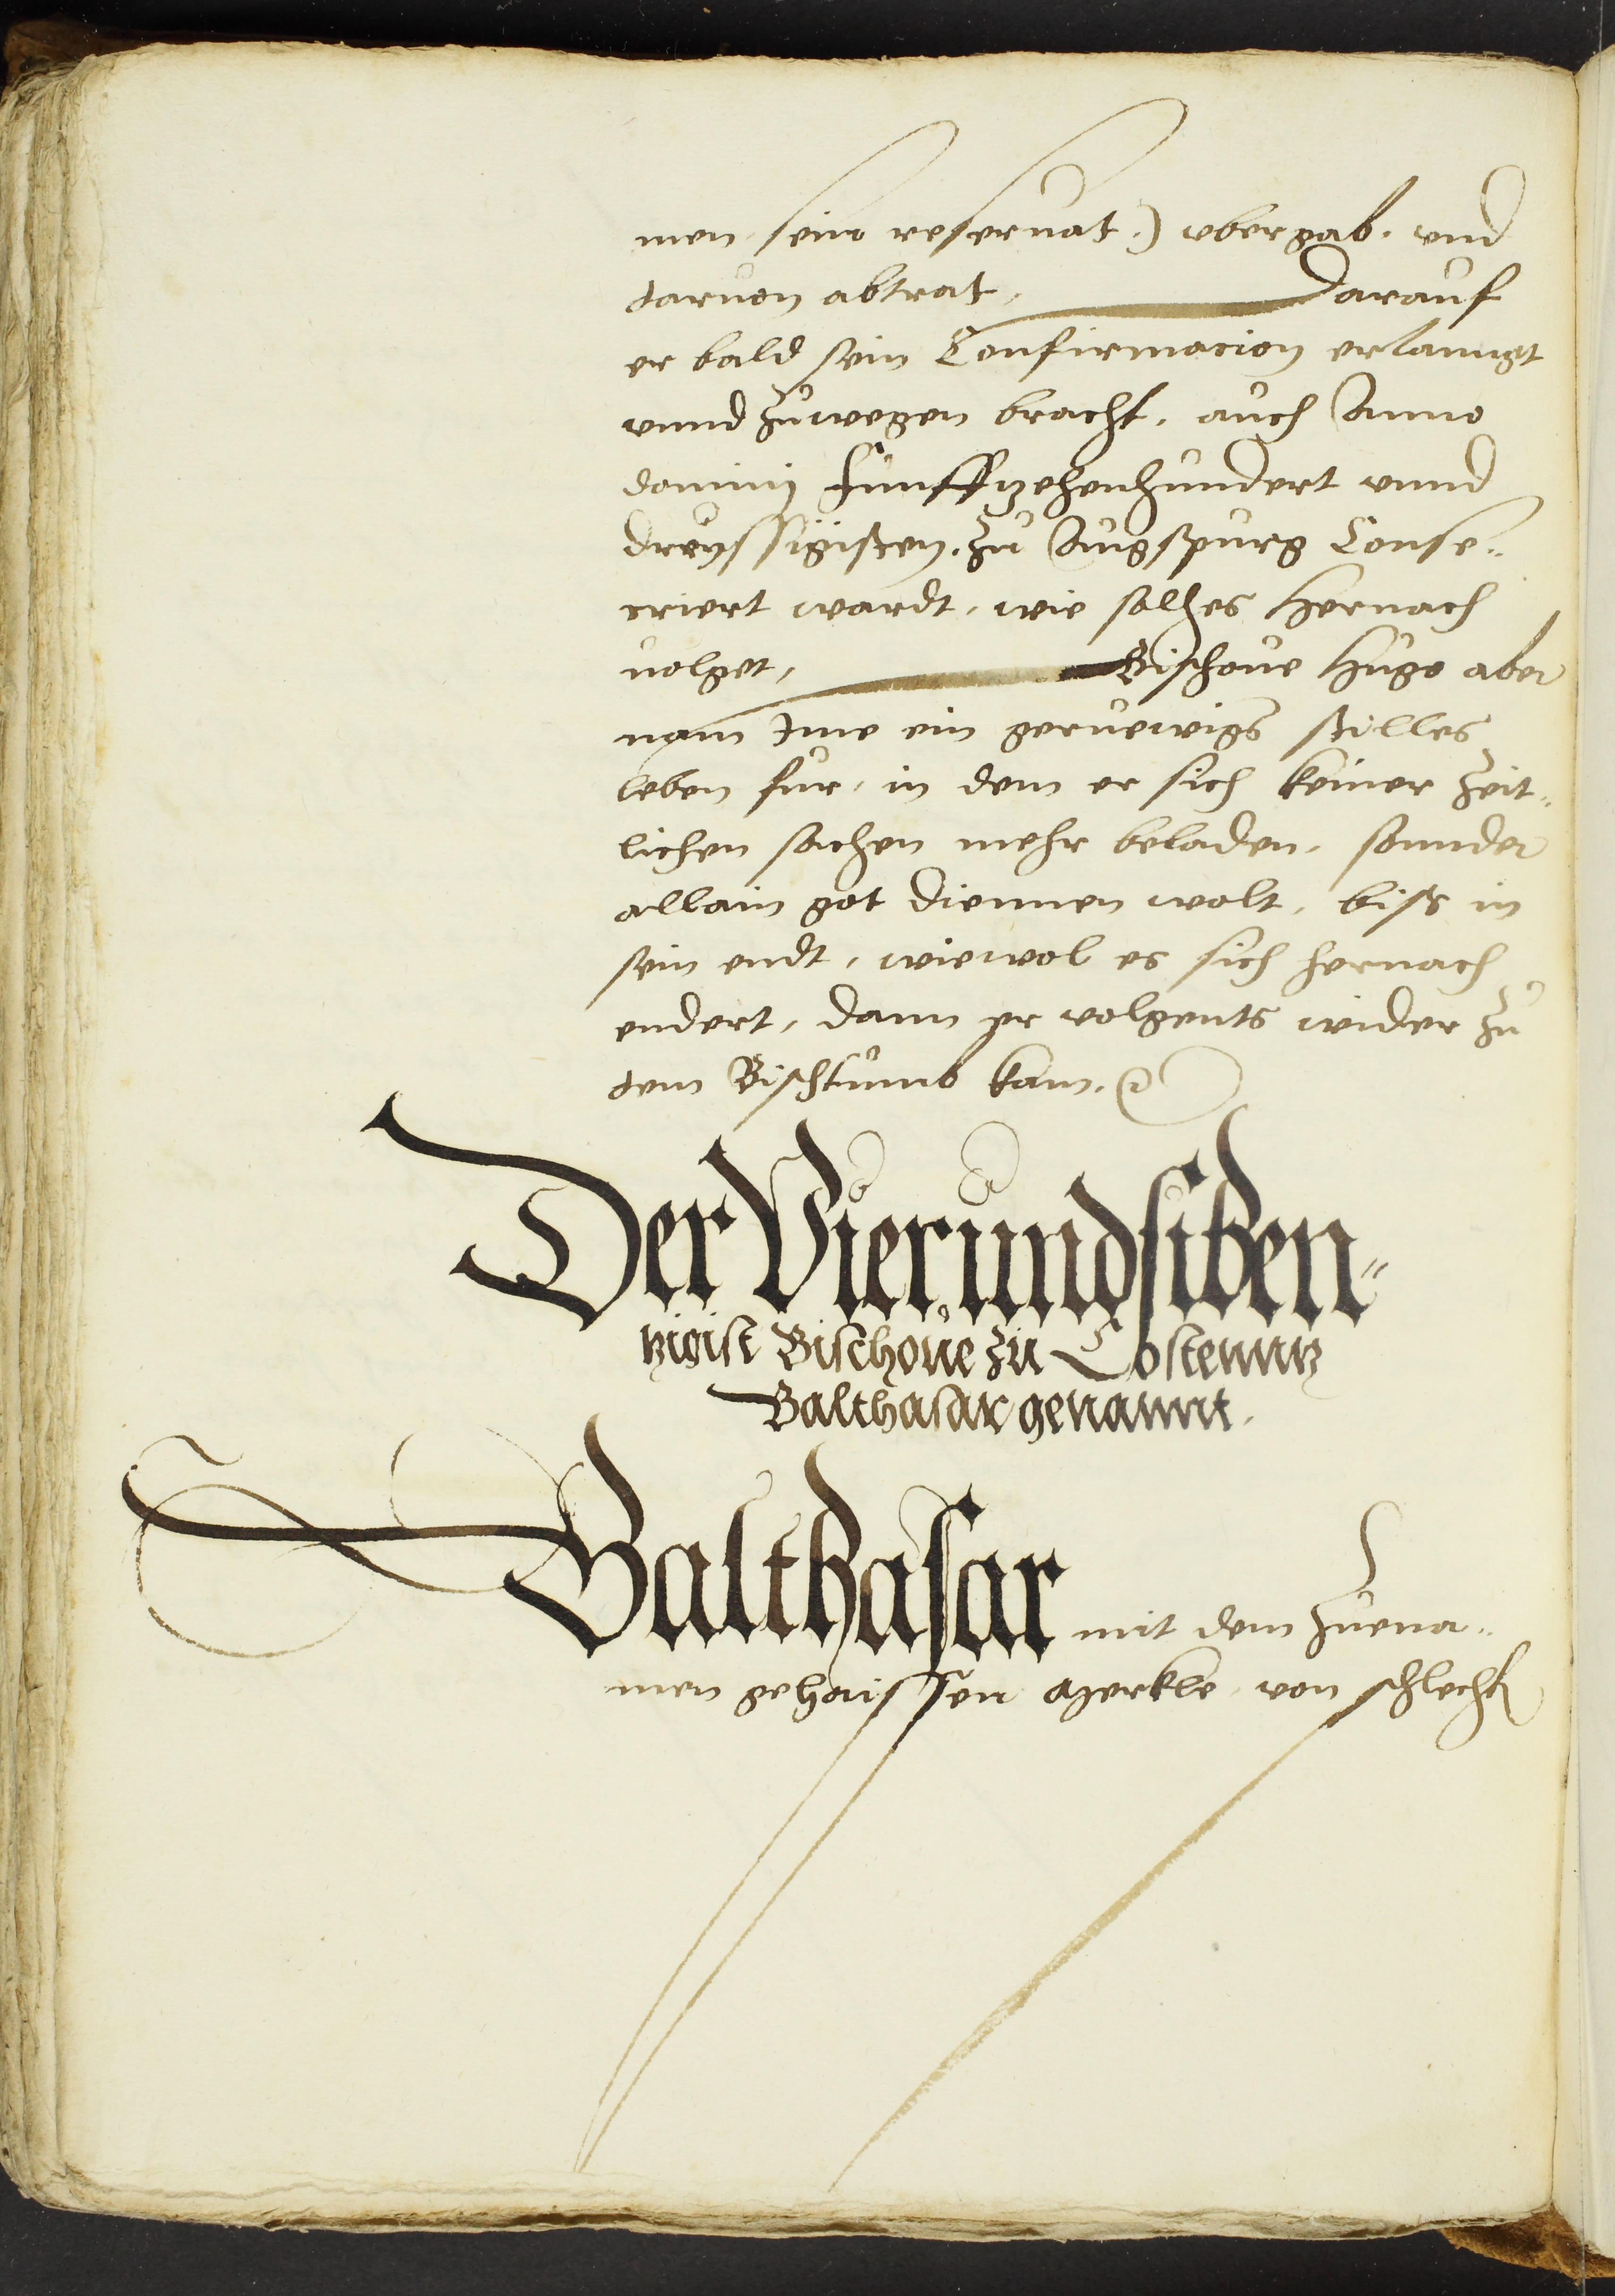 men sein reseruat.) vbergab. vnd
daruon abtrat, Darauf
er bald sein Confirmacion erlanngt
vnnd zuwegen bracht, auch Anno
dominj Funffzehenhundert vnnd
dreyssigisten, zu Augspurg Conse„
criert wardt, wie solhes hernach
uolget, Bischoue Hugo aber
nam Ime ein geruewigs stilles
leben fur, in dem er sich keiner Zeit„
lichen sachen mehr beladen, sonnder
allain got diennen wolt, biss in
sein endt, wiewol es sich hernach
endert, dann er volgents wider zu
dem Bischtumb kam.
Der Vierundsiben„
tzigist Bischoue zu Costenntz
Balthasar genannt.
Balthasar mit dem Zuena„
men gehaissen Merkle von schlecht